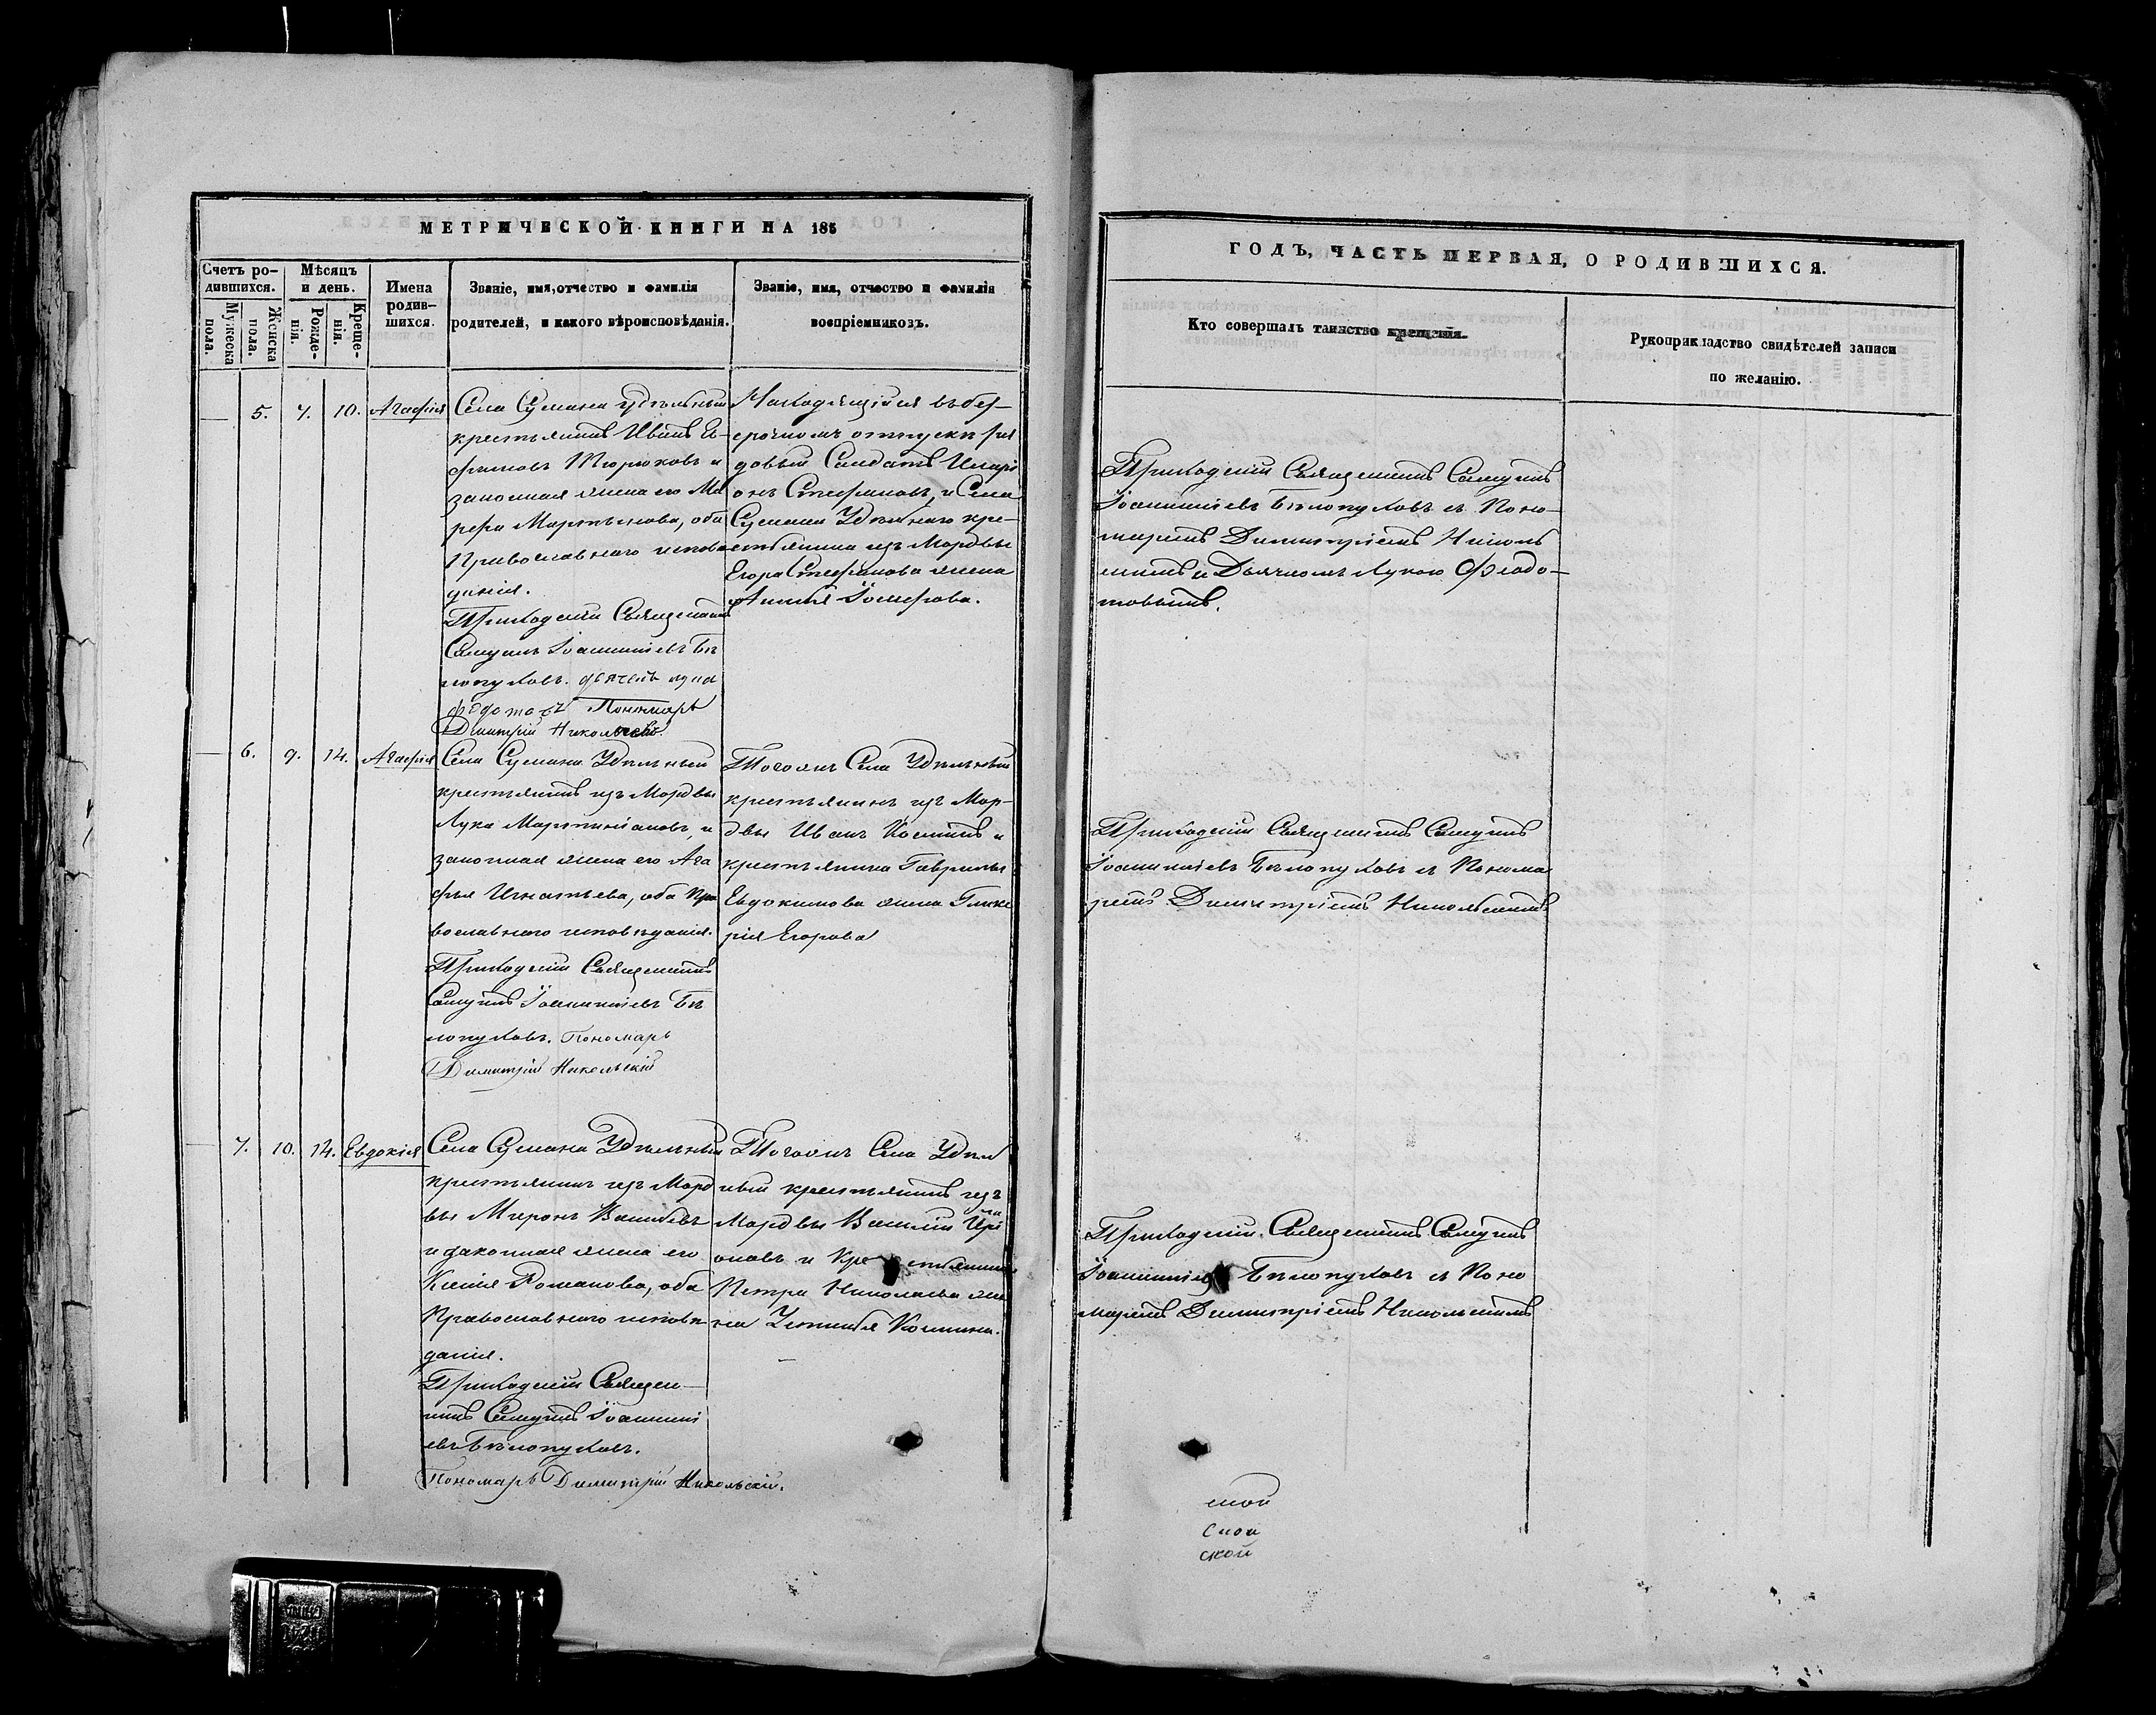 МЕТРИЧЕСКОЙ КНИГИ НА 185
Счетъ ро-
дившихся.
Мужеска
пола.
Женска
пола.
Мѣсяцъ
и день.
Рожде-
нія.
Креще-
нія.
Имена
родив-
шихся.
Званіе, имя, отчество и фамилія
родителей, и какого вѣроисповѣданія.
Званіе, имя, отчество и фамилія
воспріемниковъ.
— 5. 7. 10. Агафія
Села Сумана удѣльный
крестьянинъ Иванъ Еѳ-
фимовъ Тюрюковъ и
законная жена его Ма
рфа Мартынова, оба
Православнаго исповѣ
данія.
Приходскій Священникъ
Самуилъ Іоанникіевъ Бѣ
лопуховъ. дьячекъ Лука
Федотовъ Пономарь
Димитрій Никольскій.
Находящійся въ без-
срочномъ отпуску ря
довый Солдатъ Иларі
онъ Стефановъ, и Села
Сумана Удѣльнаго кре-
стьянина изъ Мордвы
Егора Стефанова жена
— 6. 9. 14. Агафія
Села Сумана Удѣльный
крестьянинъ изъ Мордвы
Лука Мартиніановъ, и
законная жена его Ага
фья Игнатьева, оба Пра
вославнаго исповѣданія.
Приходскій Священникъ
Самуилъ Іоанникіевъ Бѣ
лопуховъ. Пономарь
Димитрій Никольскій
Тогожъ Села Удѣльный
крестьянинъ изъ Мор-
двы Иванъ Козминъ и
крестьянина Гаврилы
Евдокимова жена Глике
рія Егорова
— 7. 10. 14. Евдокія
Села Сумана Удѣльный
крестьянинъ изъ Морд
вы Миронъ Васильевъ
и законная жена его
Ксенія Романова, оба
Православнаго исповѣ
данія.
Приходскій Священ-
никъ Самуилъ Іоанникі
евъ Бѣлопуховъ.
Пономарь Димитрій Никольскій.
Тогожъ Села Удѣл
ьный крестьянинъ изъ
Мордвы Василій Илари
оновъ и Крестьянина
Петра Николаева же
на Устинья Козмина.
ГОДЪ, ЧАСТЬ ПЕРВАЯ, О РОДИВШИХСЯ.
Кто совершалъ таинство крещенія.
Рукоприкладство свидѣтелей записи
по желанію.
Приходскій Священникъ Самуилъ
Іоанникіевъ Бѣлопуховъ съ Поно-
маремъ Димитріемъ Николь
скимъ и Дьячкомъ Лукою Ѳедо-
товымъ.
Приходскій Священникъ Самуилъ
Іоанникіевъ Бѣлопуховъ съ Понома
ремъ Димитріемъ Никольскимъ
Приходскій Священникъ Самуилъ
Іоанникіевъ Бѣлопуховъ съ Поно
маремъ Димитріемъ Никольскимъ
ской